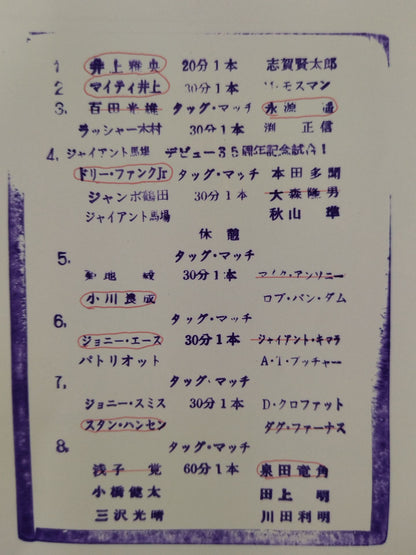 1. 井上雅央 20分1本 志賀賢太郎
2. マイティ井上 30分1本 M・モスマン
3. 百田光雄 タッグ・マッチ 永源遥
ラッシャー木村 30分1本 渕正信
4. ジャイアント馬場 デビュー35周年記念試合1
ドリー・ファンクJr タッグ・マッチ 本田多聞
ジャンボ鶴田 30分1本 大森隆男
ジャイアント馬場 秋山準
休憩
5. タッグ・マッチ
菊地毅 30分1本 マイク・アンソニー
小川良成 ロブ・バン・ダム
6. タッグ・マッチ
ジョニー・エース 30分1本 ジャイアント・キマラ
パトリオット A・T・ブッチャー
7. タッグ・マッチ
ジョニー・スミス 30分1本 D・クロファット
スタン・ハンセン ダグ・ファーナス
8. タッグ・マッチ
浅子覚 60分1本 泉田竜角
小橋健太 田上明
三沢光晴 川田利明